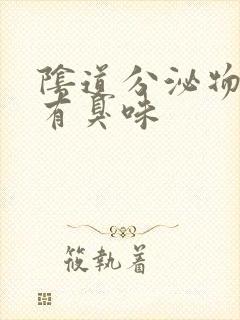 陰道分泌物
有臭味
筱執着